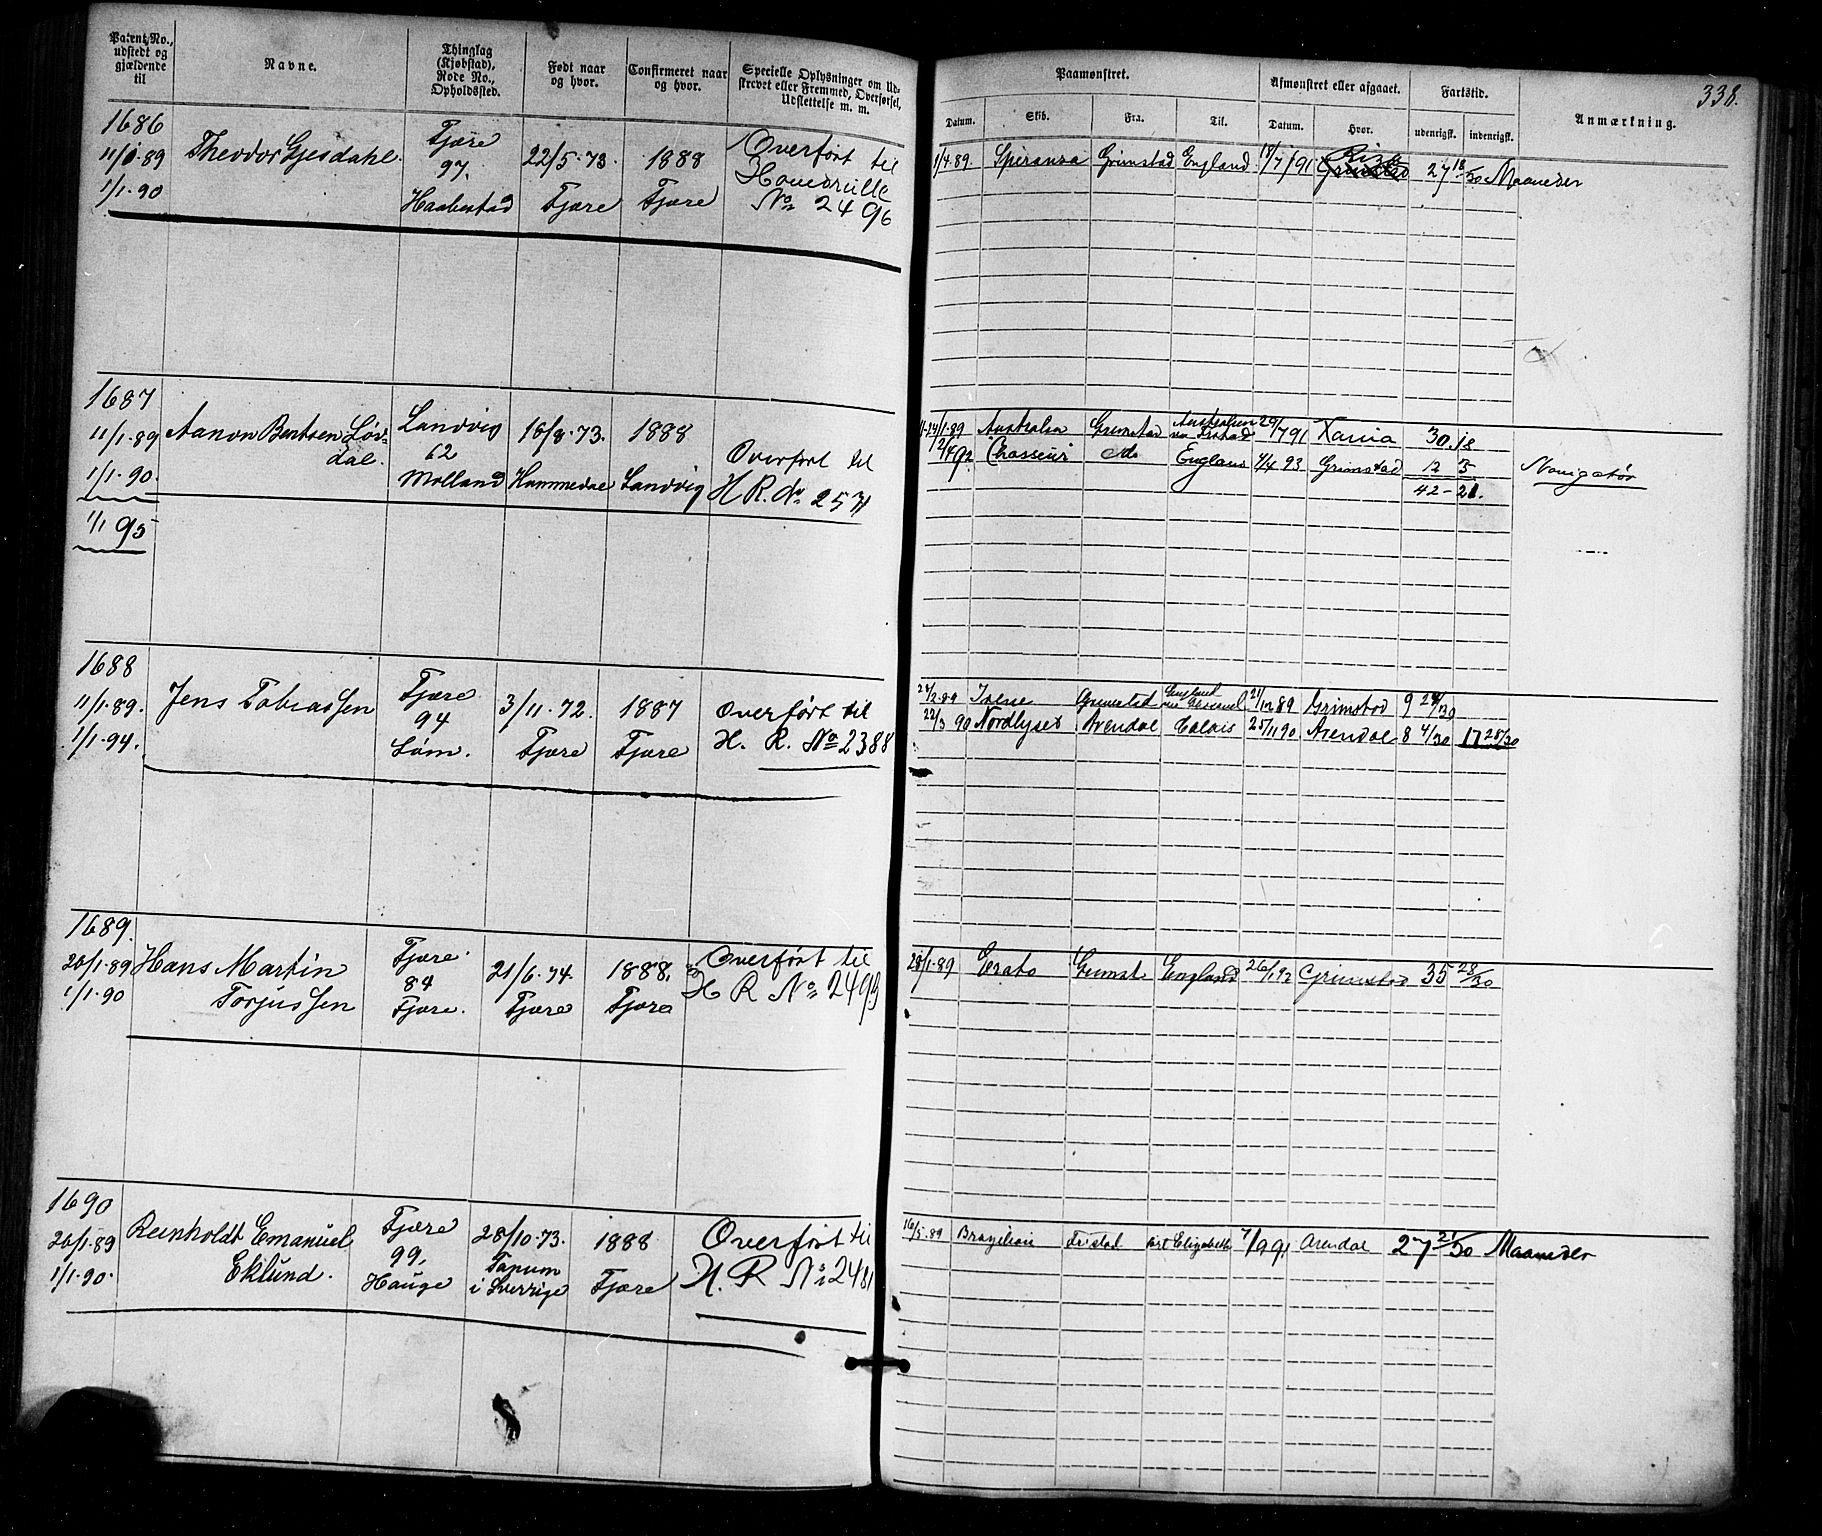 Patent, No., udstedt og gjældende til
Navne.
Thinglag (Kjøbstad), Rode No., Opholdssted.
Født naar og hvor.
Confirmeret naar og hvor.
Specielle Oplysninger om Udskrevet eller Fremmed, Overførsel, Udslettelse m. m.
Paamønstret.
Datum.
Skib.
Fra.
Til.
Afmønstret eller afgaaet.
Datum.
Hvor.
Fartstid.
udenrigsk.
indenrigsk.
Anmærkning.
338.
1686
11/1 89
1/1 90
Theodor Gjesdahl.
Fjære
97.
Haabestad
22/5 73.
Fjære
1888
Fjære
Overført til
Hovedrulle
No 2496
1/4 89. Speranza Grimstad England 18/7 91 Grimstad 27 18/30 Maaneder
1687
11/1 89
1/1 90.
1/1 95
Aanon Bentsen Løv-
dal.
Landvig
62
Molland
16/8 73.
Hommedal
1888
Landvig
Overført til
H R. No 257
1/89 Australia Grimstad Australien 20/7 91 Xania 30.18
12/4 92 Chasseur do England 1/4 93 Grimstad 12 3
42-21.
Navigatør
1688
11/1 89.
1/1 94.
Jens Tobiassen
Fjære
94
Løm.
3/11 72.
Fjære
1887
Fjære
Overført til
H. R. No 2388
Grimstad England 21/12 89 Grimstad 9 29/30
22/3 90 Nordlyset Arendal Calais 25/11 90 Arendal 8 4/30 17 28/30
1689.
20/1 89
1/1 90
Hans Martin
Torjussen
Fjære
84
Fjære.
21/6 74.
Fjære
1888.
Fjære
Overført til
H R No 2495
28/1 89 Erato Grimst England 26/1 92 Grimstad 35 28/30
1690
20/1 89
1/1 90.
Reinholdt Emanuel
Eklund.
Fjære
99,
Hauge
28/10 73.
Tanum
i Sverrige
1888
Fjære
Overført til
H. R No 2481
16/5 89 Brazilian Port Elizabeth 7/9 91 Arendal 27 21/30 Maaneder